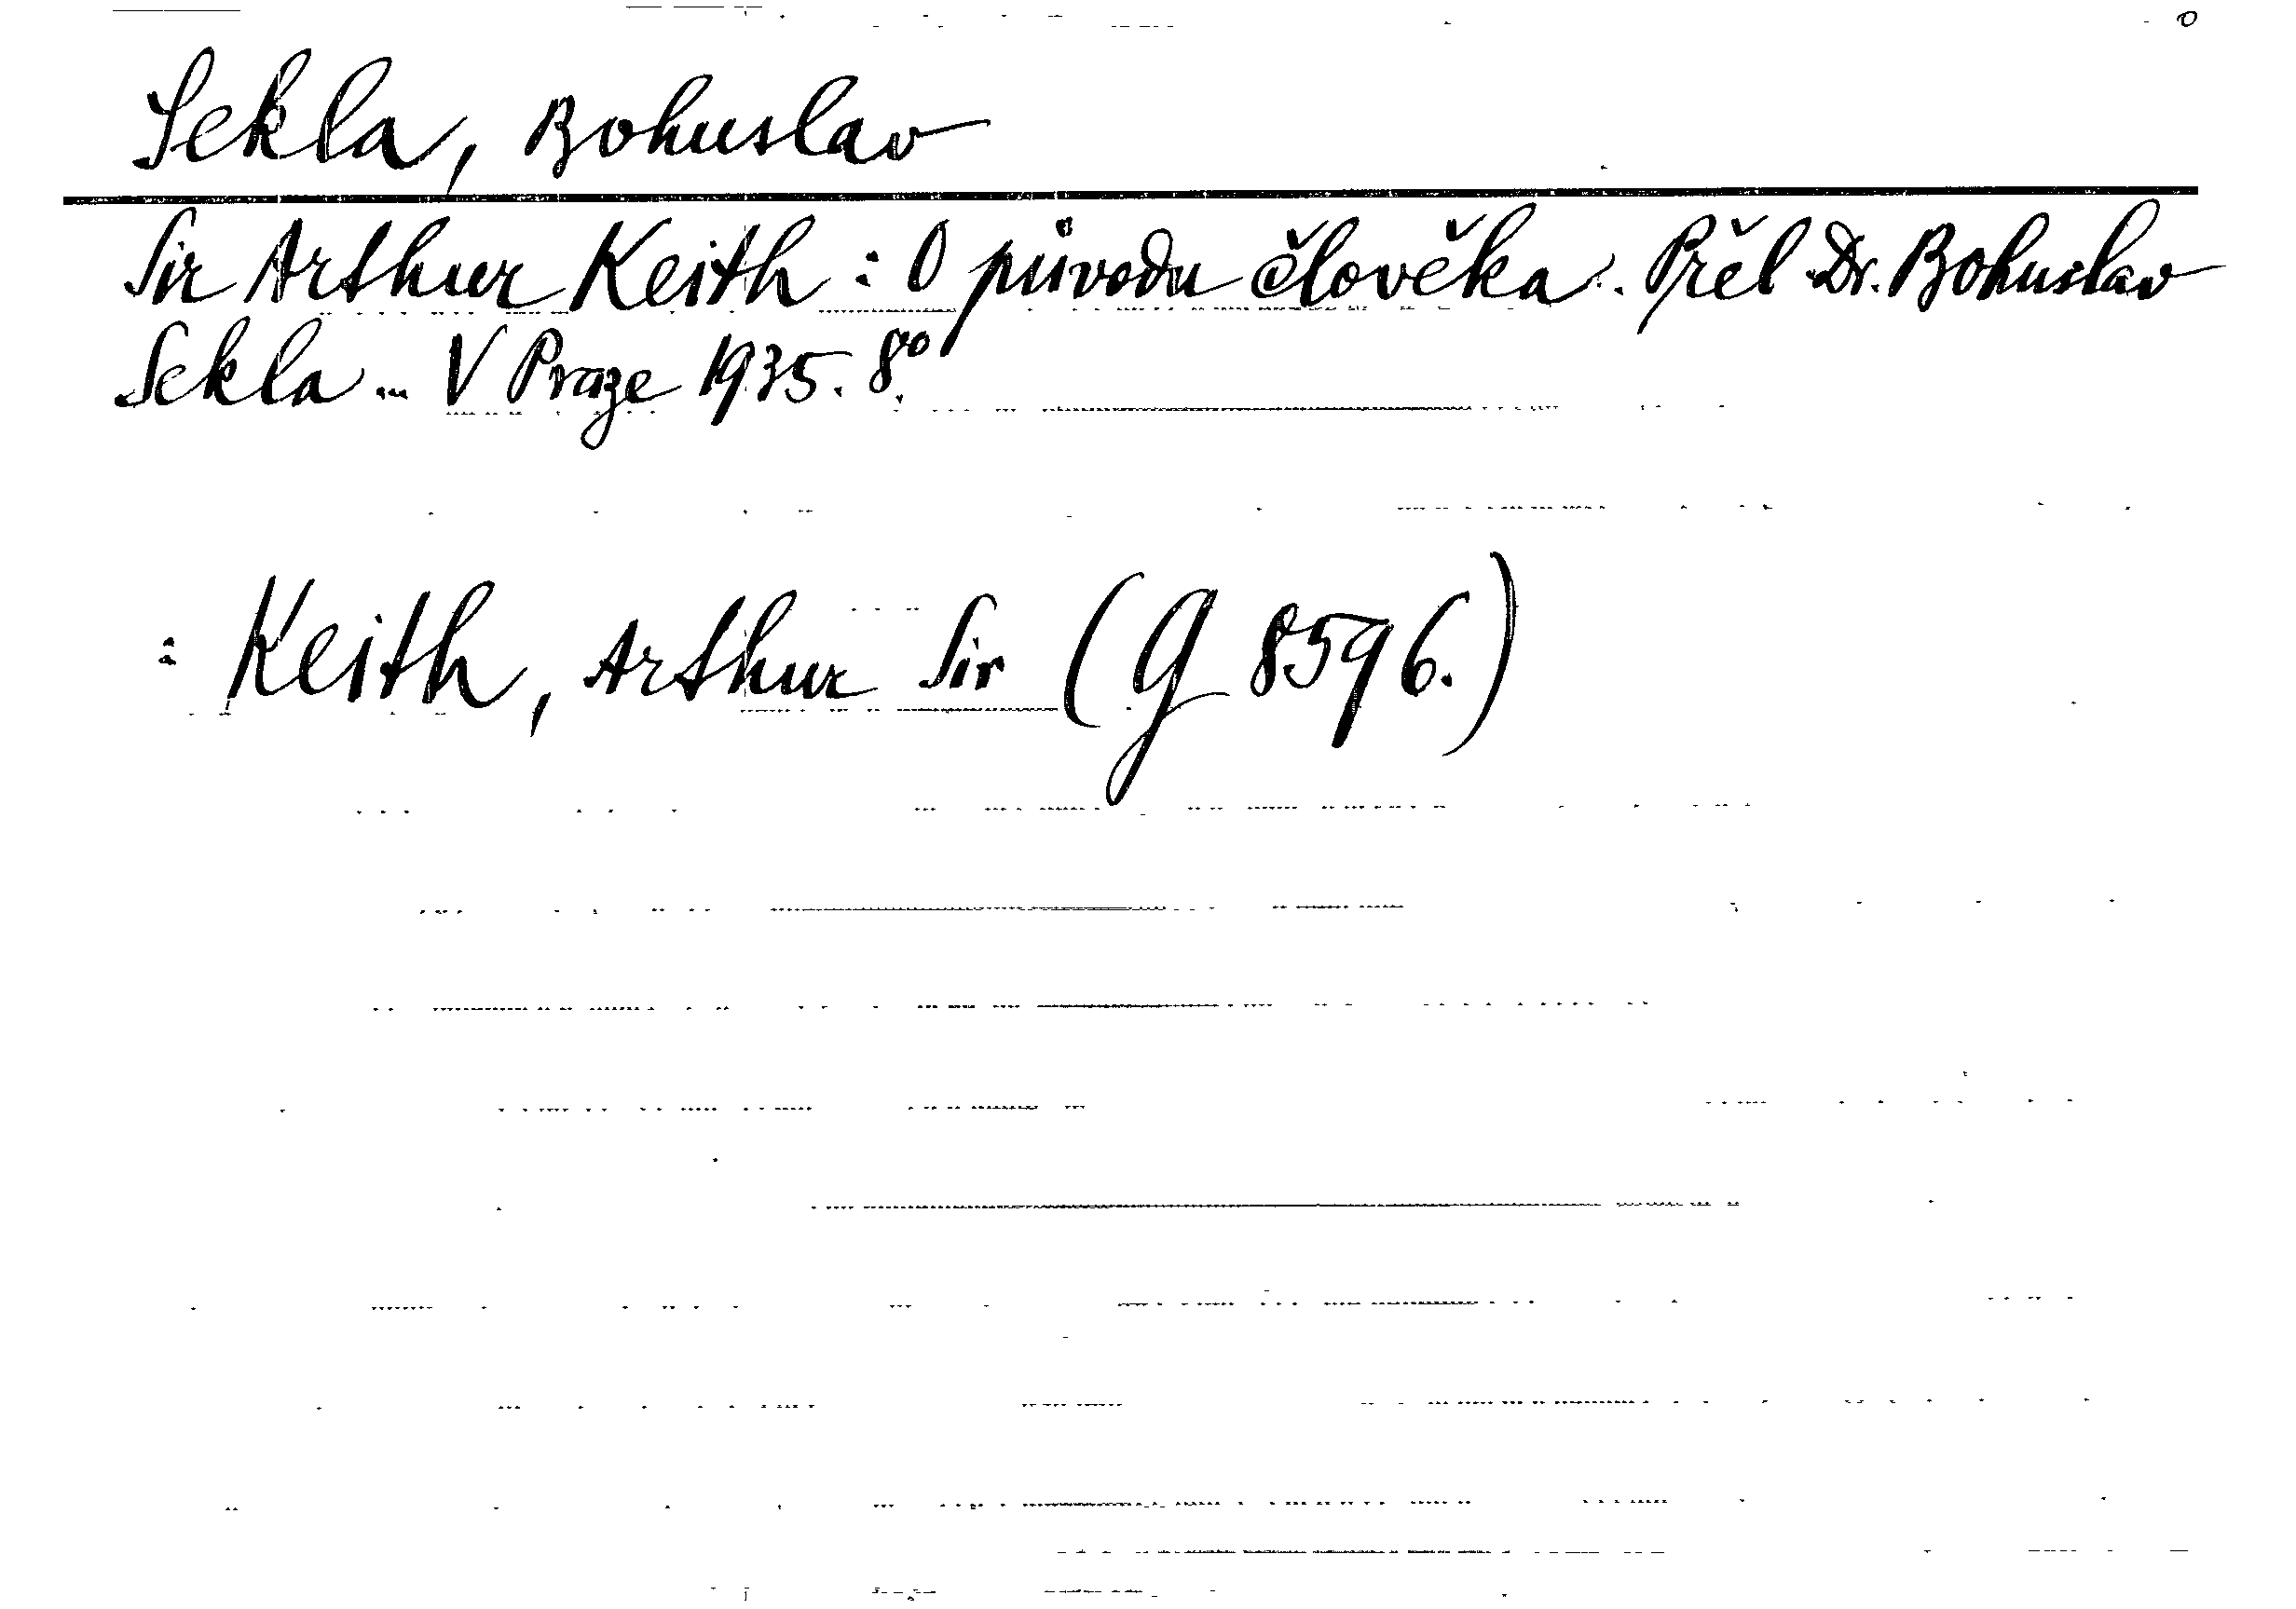 Sekla, Bohuslav
Sir Arthur Keith : O původu člověka. Přel Dr. Bohuslav
Sekla ... V Praze 1935. 8°.
: Keith, Arthur Sir (G 8596.)